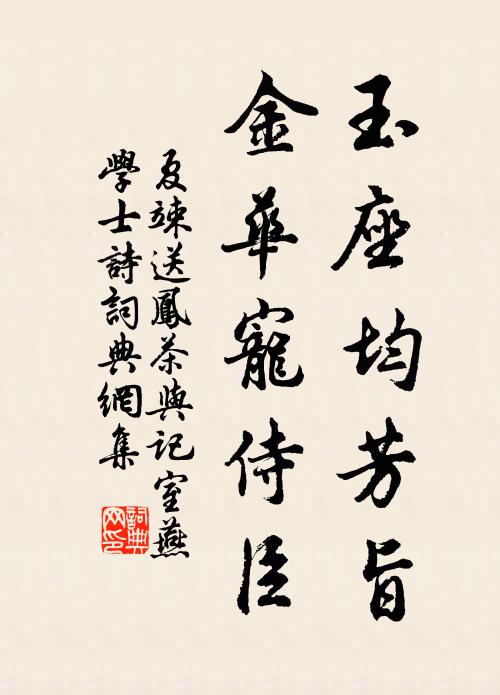 玉座均芳旨
金華寵侍臣
夏竦送鳳茶與記室燕
學士詩詞典網集
詞典
网印